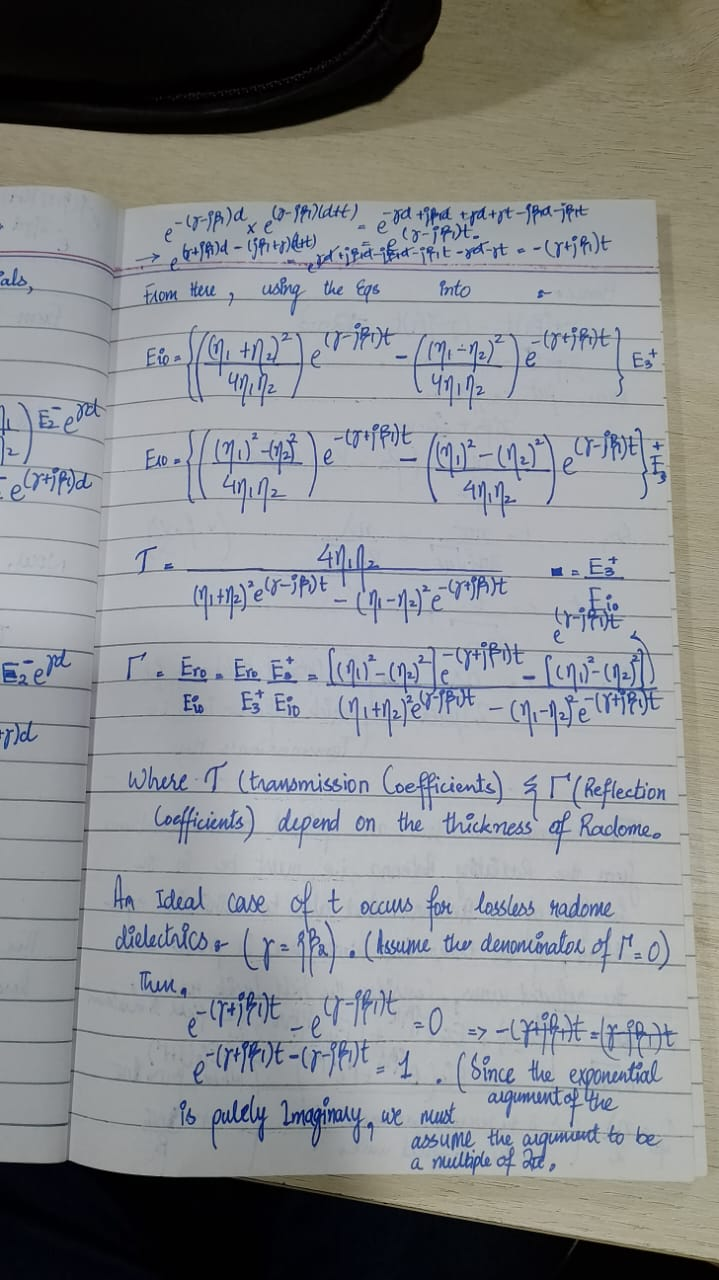 als,
η₁
η₂) E₂⁻ e^γd
e^(γ+jβ₁)d
E₂⁻ e^γd
+γ)d
e^-(γ-jβ₁)d × e^(γ-jβ₁)(d+t) = e^-γd+jβ₁d+γd+γt-jβ₁d-jβ₁t
= e^(γ-jβ₁)t.
→ e^(γ+jβ₁)d-(jβ₁+γ)(d+t) = e^γd+jβ₁d-jβ₁d-jβ₁t-γd-γt = -(γ+jβ₁)t
From Here, using the Eqs into :-
Eio = {((η₁+η₂)²/4η₁η₂) e^(γ-jβ₁)t - ((η₁-η₂)²/4η₁η₂) e^-(γ+jβ₁)t} E₃⁺
Ero = {((η₁)²-(η₂)²/4η₁η₂) e^-(γ+jβ₁)t - ((η₁)²-(η₂)²/4η₁η₂) e^(γ-jβ₁)t} E₃⁺
T = 4η₁η₂/(η₁+η₂)²e^(γ-jβ₁)t - (η₁-η₂)²e^-(γ+jβ₁)t = E₃⁺/Eio
Γ = Ero/Eio = Ero/E₃⁺ E₃⁺/Eio = [(η₁)²-(η₂)²]e^-(γ+jβ₁)t - [(η₁)²-(η₂)²] e^(γ-jβ₁)t/(η₁+η₂)²e^(γ-jβ₁)t - (η₁-η₂)²e^-(γ+jβ₁)t
Where T (transmission Coefficients) & Γ (Reflection
Coefficients) depend on the thickness of Radome.
An Ideal case of t occurs for lossless radome
dielectrics :- (γ = jβ₂). (Assume the denominator of Γ=0)
Then,
e^-(γ+jβ₁)t - e^(γ-jβ₁)t = 0 => -(γ+jβ₁)t = (γ-jβ₁)t
e^-(γ+jβ₁)t-(γ-jβ₁)t = 1. (Since the exponential
argument of the
is purely Imaginary, we must
assume the argument to be
a multiple of 2π.